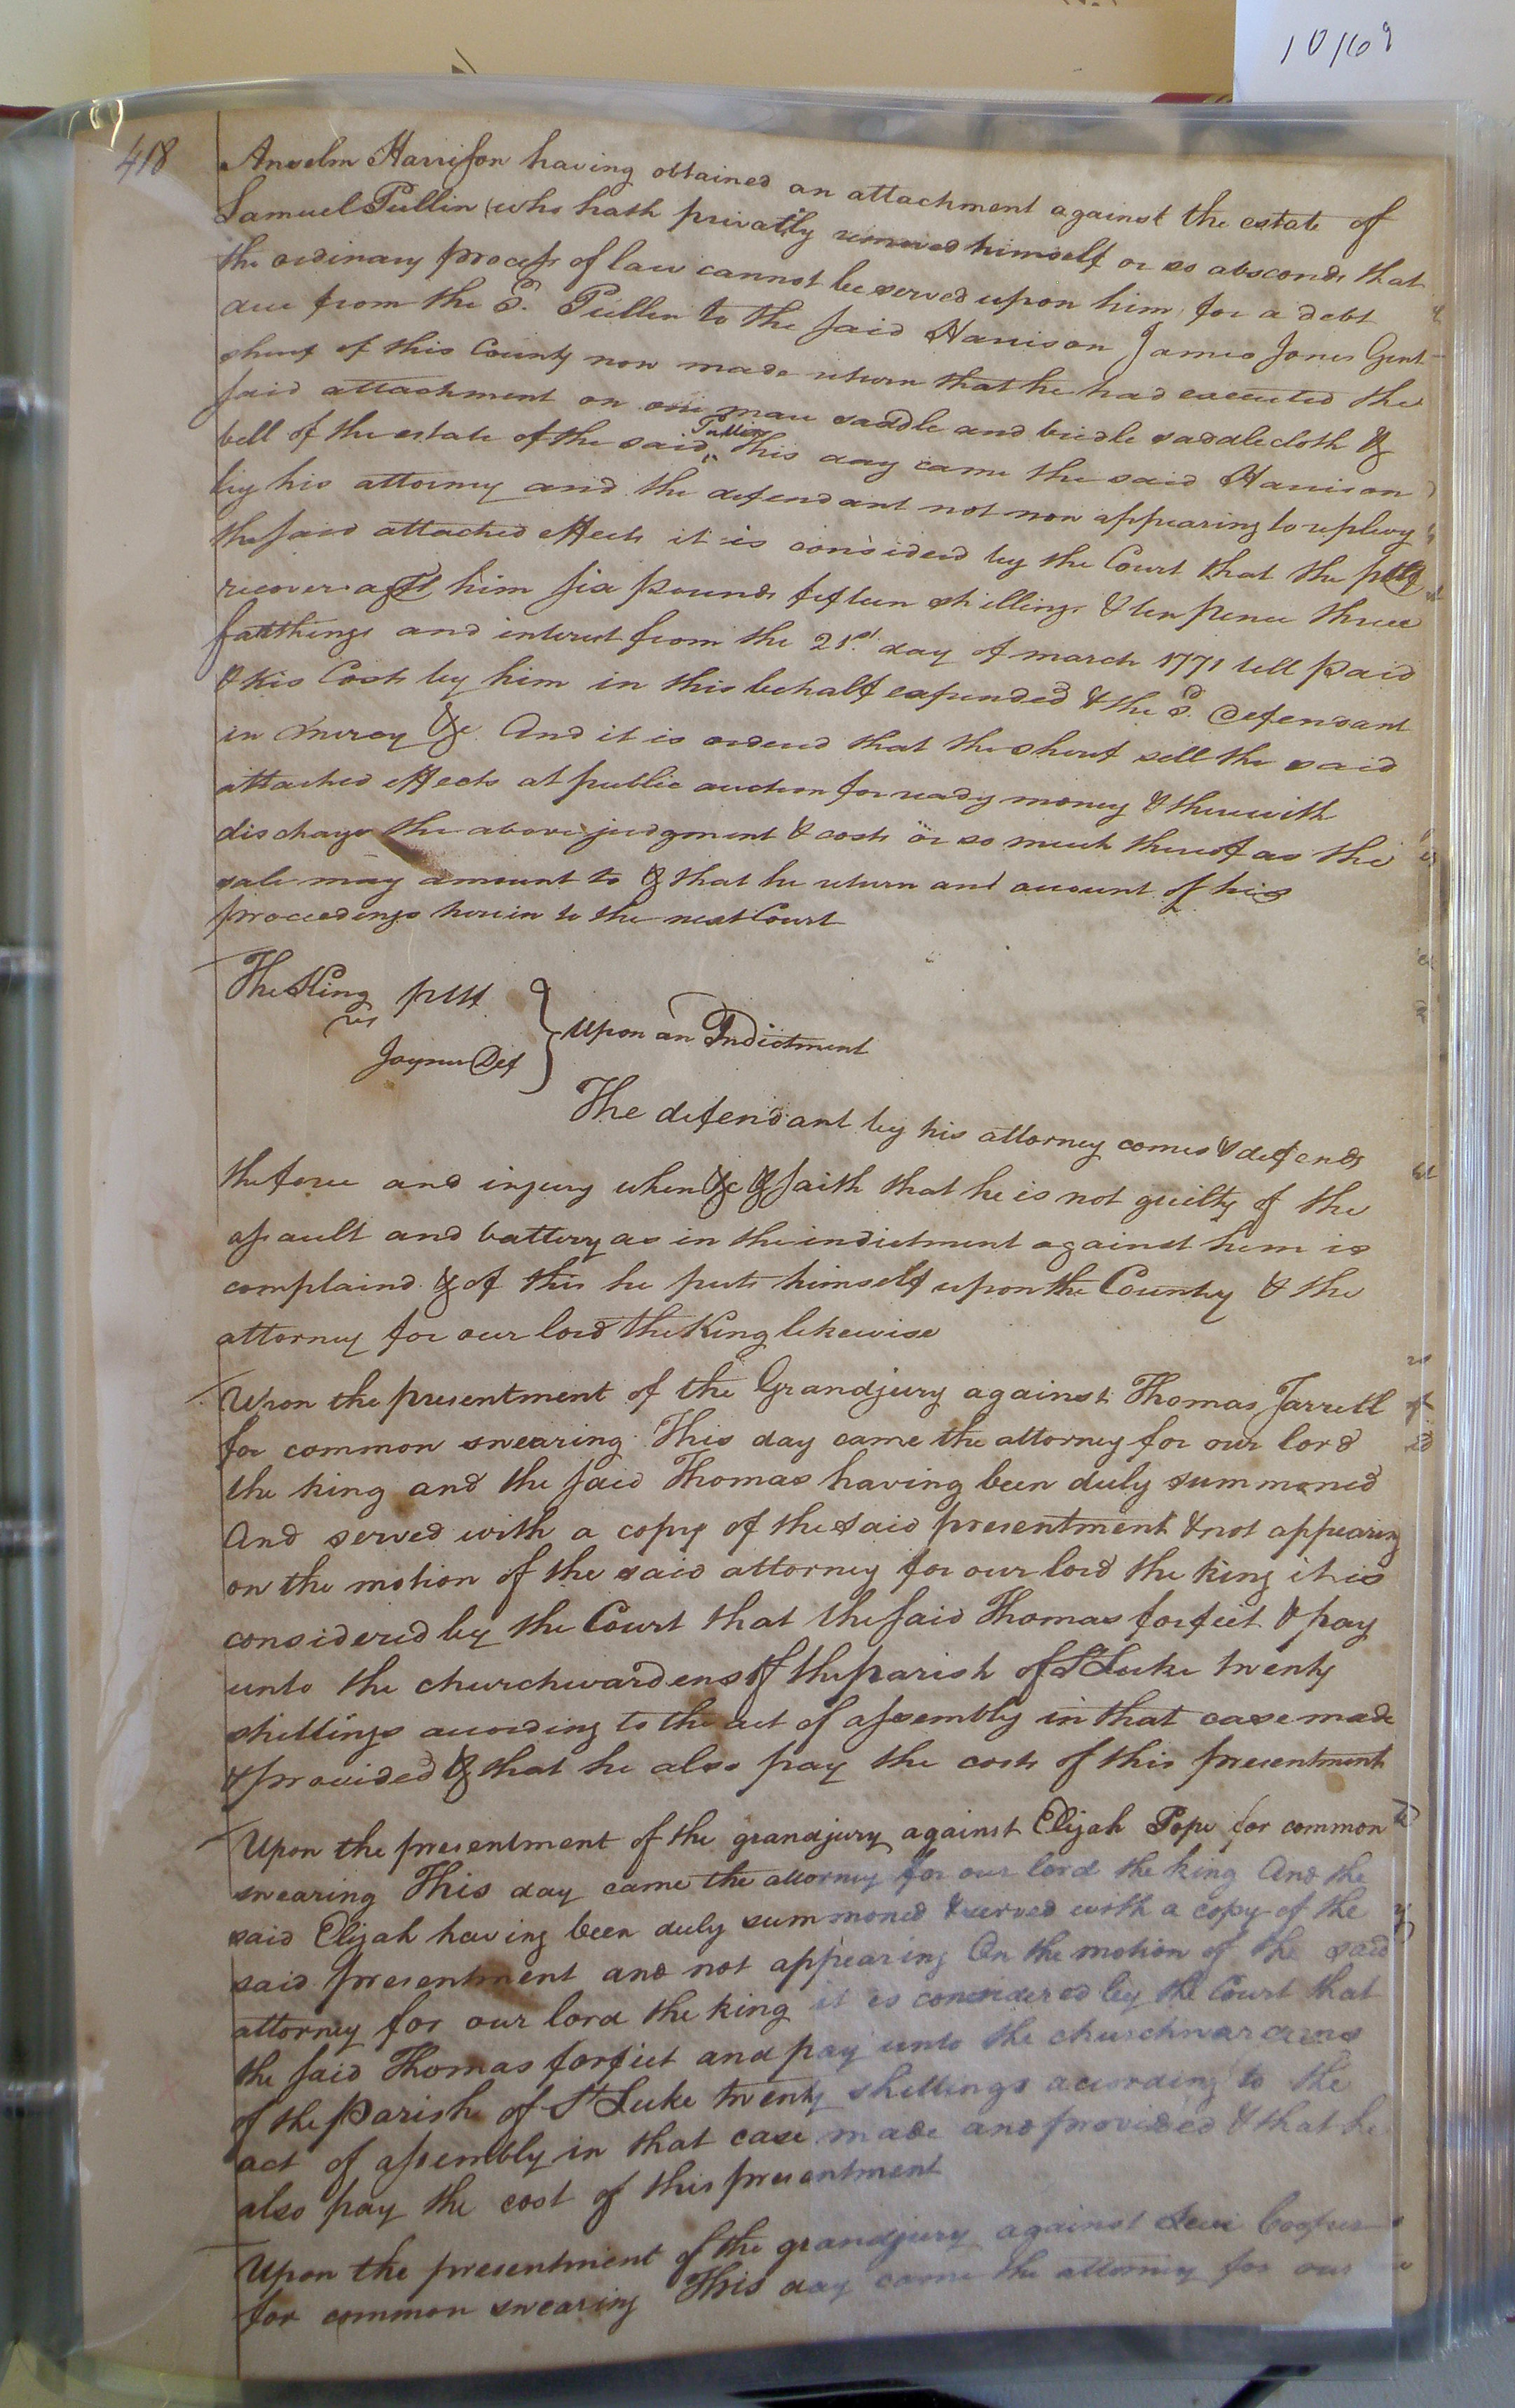 10168
418
Anselm Harrison having obtained an attachment against the estate of
Samuel Pullin (who hath privatly removed himself or so absconds that
the ordinary process of law cannot be served upon him, for a debt
due from the Sd. Pullin to the said Harrison James Jones Gent
sheriff of this County now made return that he had executed the
said attachment on one mare saddle and bridle saddlecloth &
bell of the estate of the said Pullin This day came the said Harrison
by his attorney and the defendant not now appearing to replevy
the said attached effects it is considerd by the Court that the pltf
recover agst him six pounds fifteen shillings & ten pence three
farthings and interest from the 21st day of march 1771 till paid
& his Costs by him in this behalf expended & the sd. defendant
in mercy &c. And it is orderd that the sherif sell the said
attached effects at public auction for ready money & therewith
discharge the above judgment & costs or so much thereof as the
sale may amount to & that he return and account of his
proceedings herein to the next Court
The King pltf
vs
Joyner Def
Upon an Indictment
The defendant by his attorney comes & defends
the force and injury when &c & saith that he is not guilty of the
assault and battery as in the indictment against him is
complaind & of this he puts himself upon the Country & the
attorney for our lord the King likewise
Upon the presentment of the Grandjury against Thomas Jarrell
for common swearing This day came the attorney for our lord
the king and the said Thomas having been duly summoned
And served with a copy of the said presentment & not appearing
on the motion of the said attorney for our lord the king it is
considered by the Court that the said Thomas forfeit & pay
unto the churchwardens of the parish of St Luke twenty
shillings according to the act of assembly in that case made
& provided & that he also pay the costs of this presentment
Upon the presentment of the grandjury against Elijah Pope for common
swearing This day came the attorney for our lord the king And the
said Elijah having been duly summoned & served with a copy of the
said presentment and not appearing On the motion of the said
attorney for our lord the king it is considered by the Court that
the said Thomas forfiet and pay unto the churchwardens
of the parish of St Luke twenty shillings according to the
act of assembly in that case made and provided & that he
also pay the cost of this presentment
Upon the presentment of the grandjury against Levi Cooper
for common swearing This day came the attorney for our